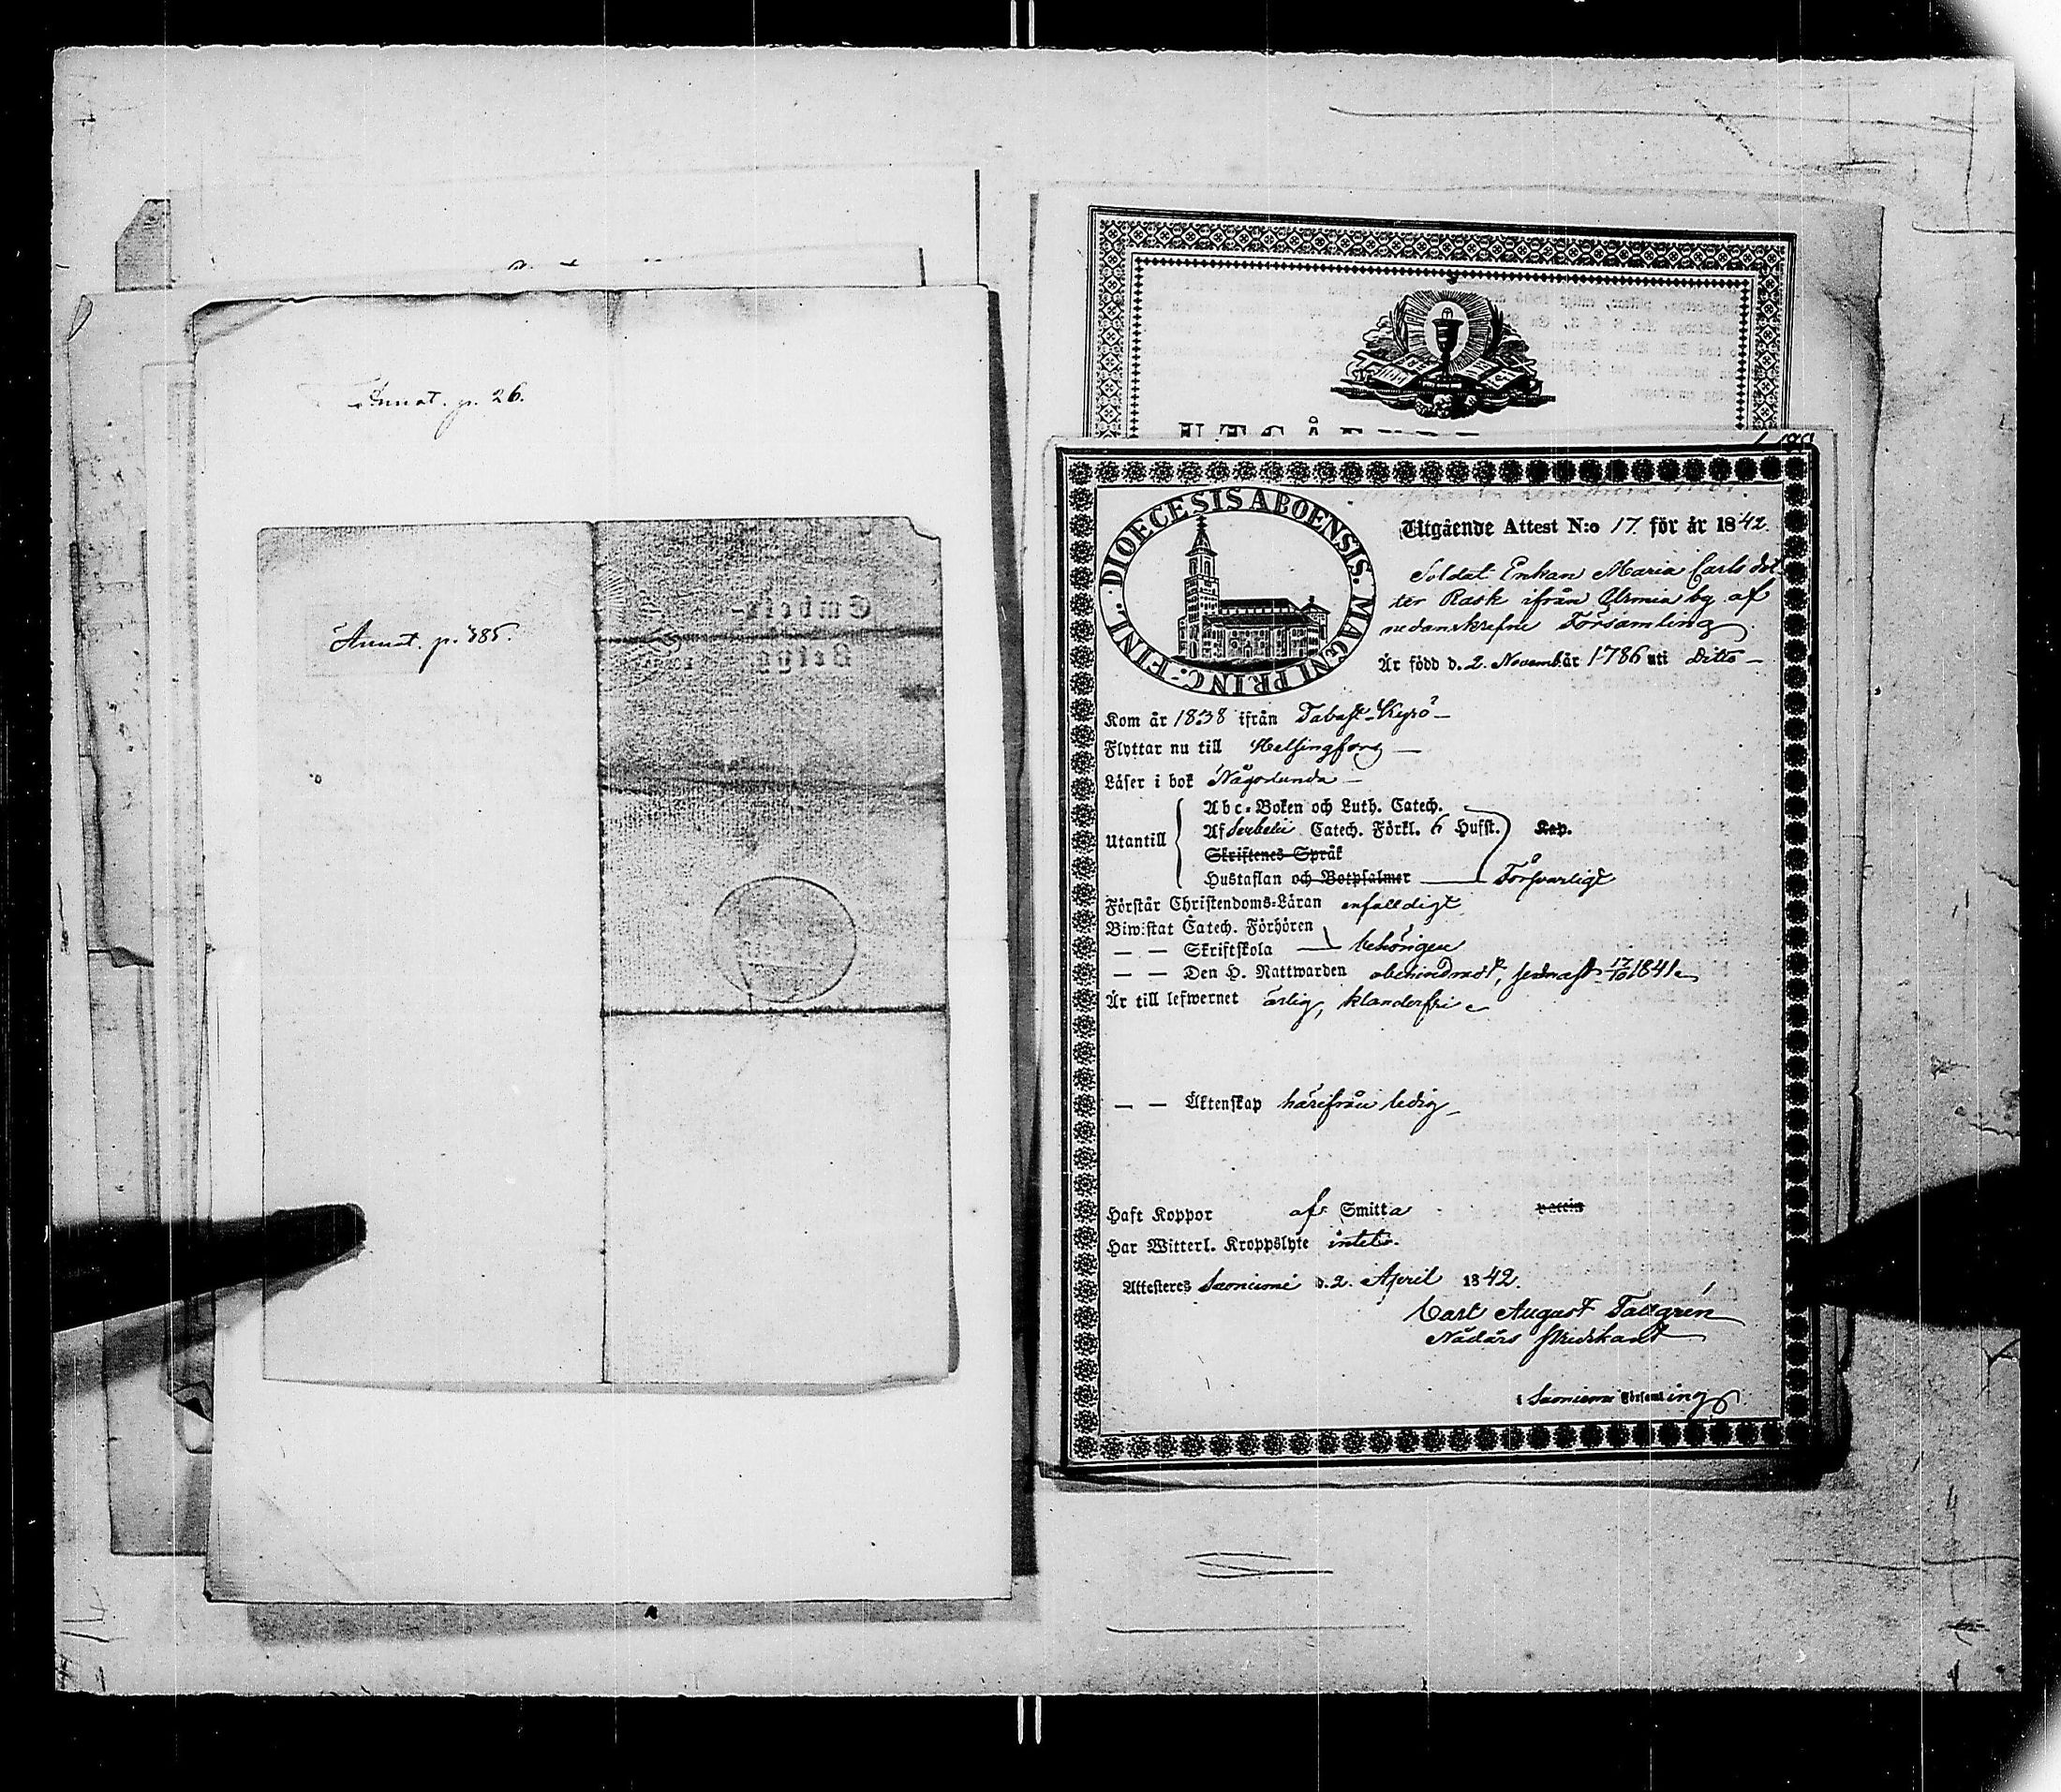 Annot. p. 26.
Annot. p. 385.
Embets-
Bref
DIOECESIS ABOENSIS. MAGNI PRINC. FINL.
Utgående Attest N:o 17. för år 1842.
Soldat Enkan Maria Carls dot-
ter Rask ifrån by af
nedanskrefne Församling
Är född d. 2. Novemb. år 1786 uti Ditto –
Kom år 1838 ifrån Tabast-Kyrö –
Flyttar nu till Helsingfors –
Läser i bok Någorlunda –
Utantill
Abc-Boken och Luth. Catech.
Af Catech. Förkl. 6 Hufst. Kap.
Skriftenes Språk
Hustaflan och Botpsalmer Försvarligt
Förstår Christendoms-Läran enfalldigt
Biwistat Catech. Förhören
— — Skriftskola behörigen
— — Den H. Nattwarden obehindradt, sednast 17/10 1841
Är till lefwernet ärlig, klanderfri
— — Äktenskap härifrån ledig
Haft Koppor af Smitta
Har Witterl. Kroppslyte intet.
Attesteras Somerni d. 2. April 1842.
Carl August Tallgrén
Nådårs Predikant
i Somerni Församling.